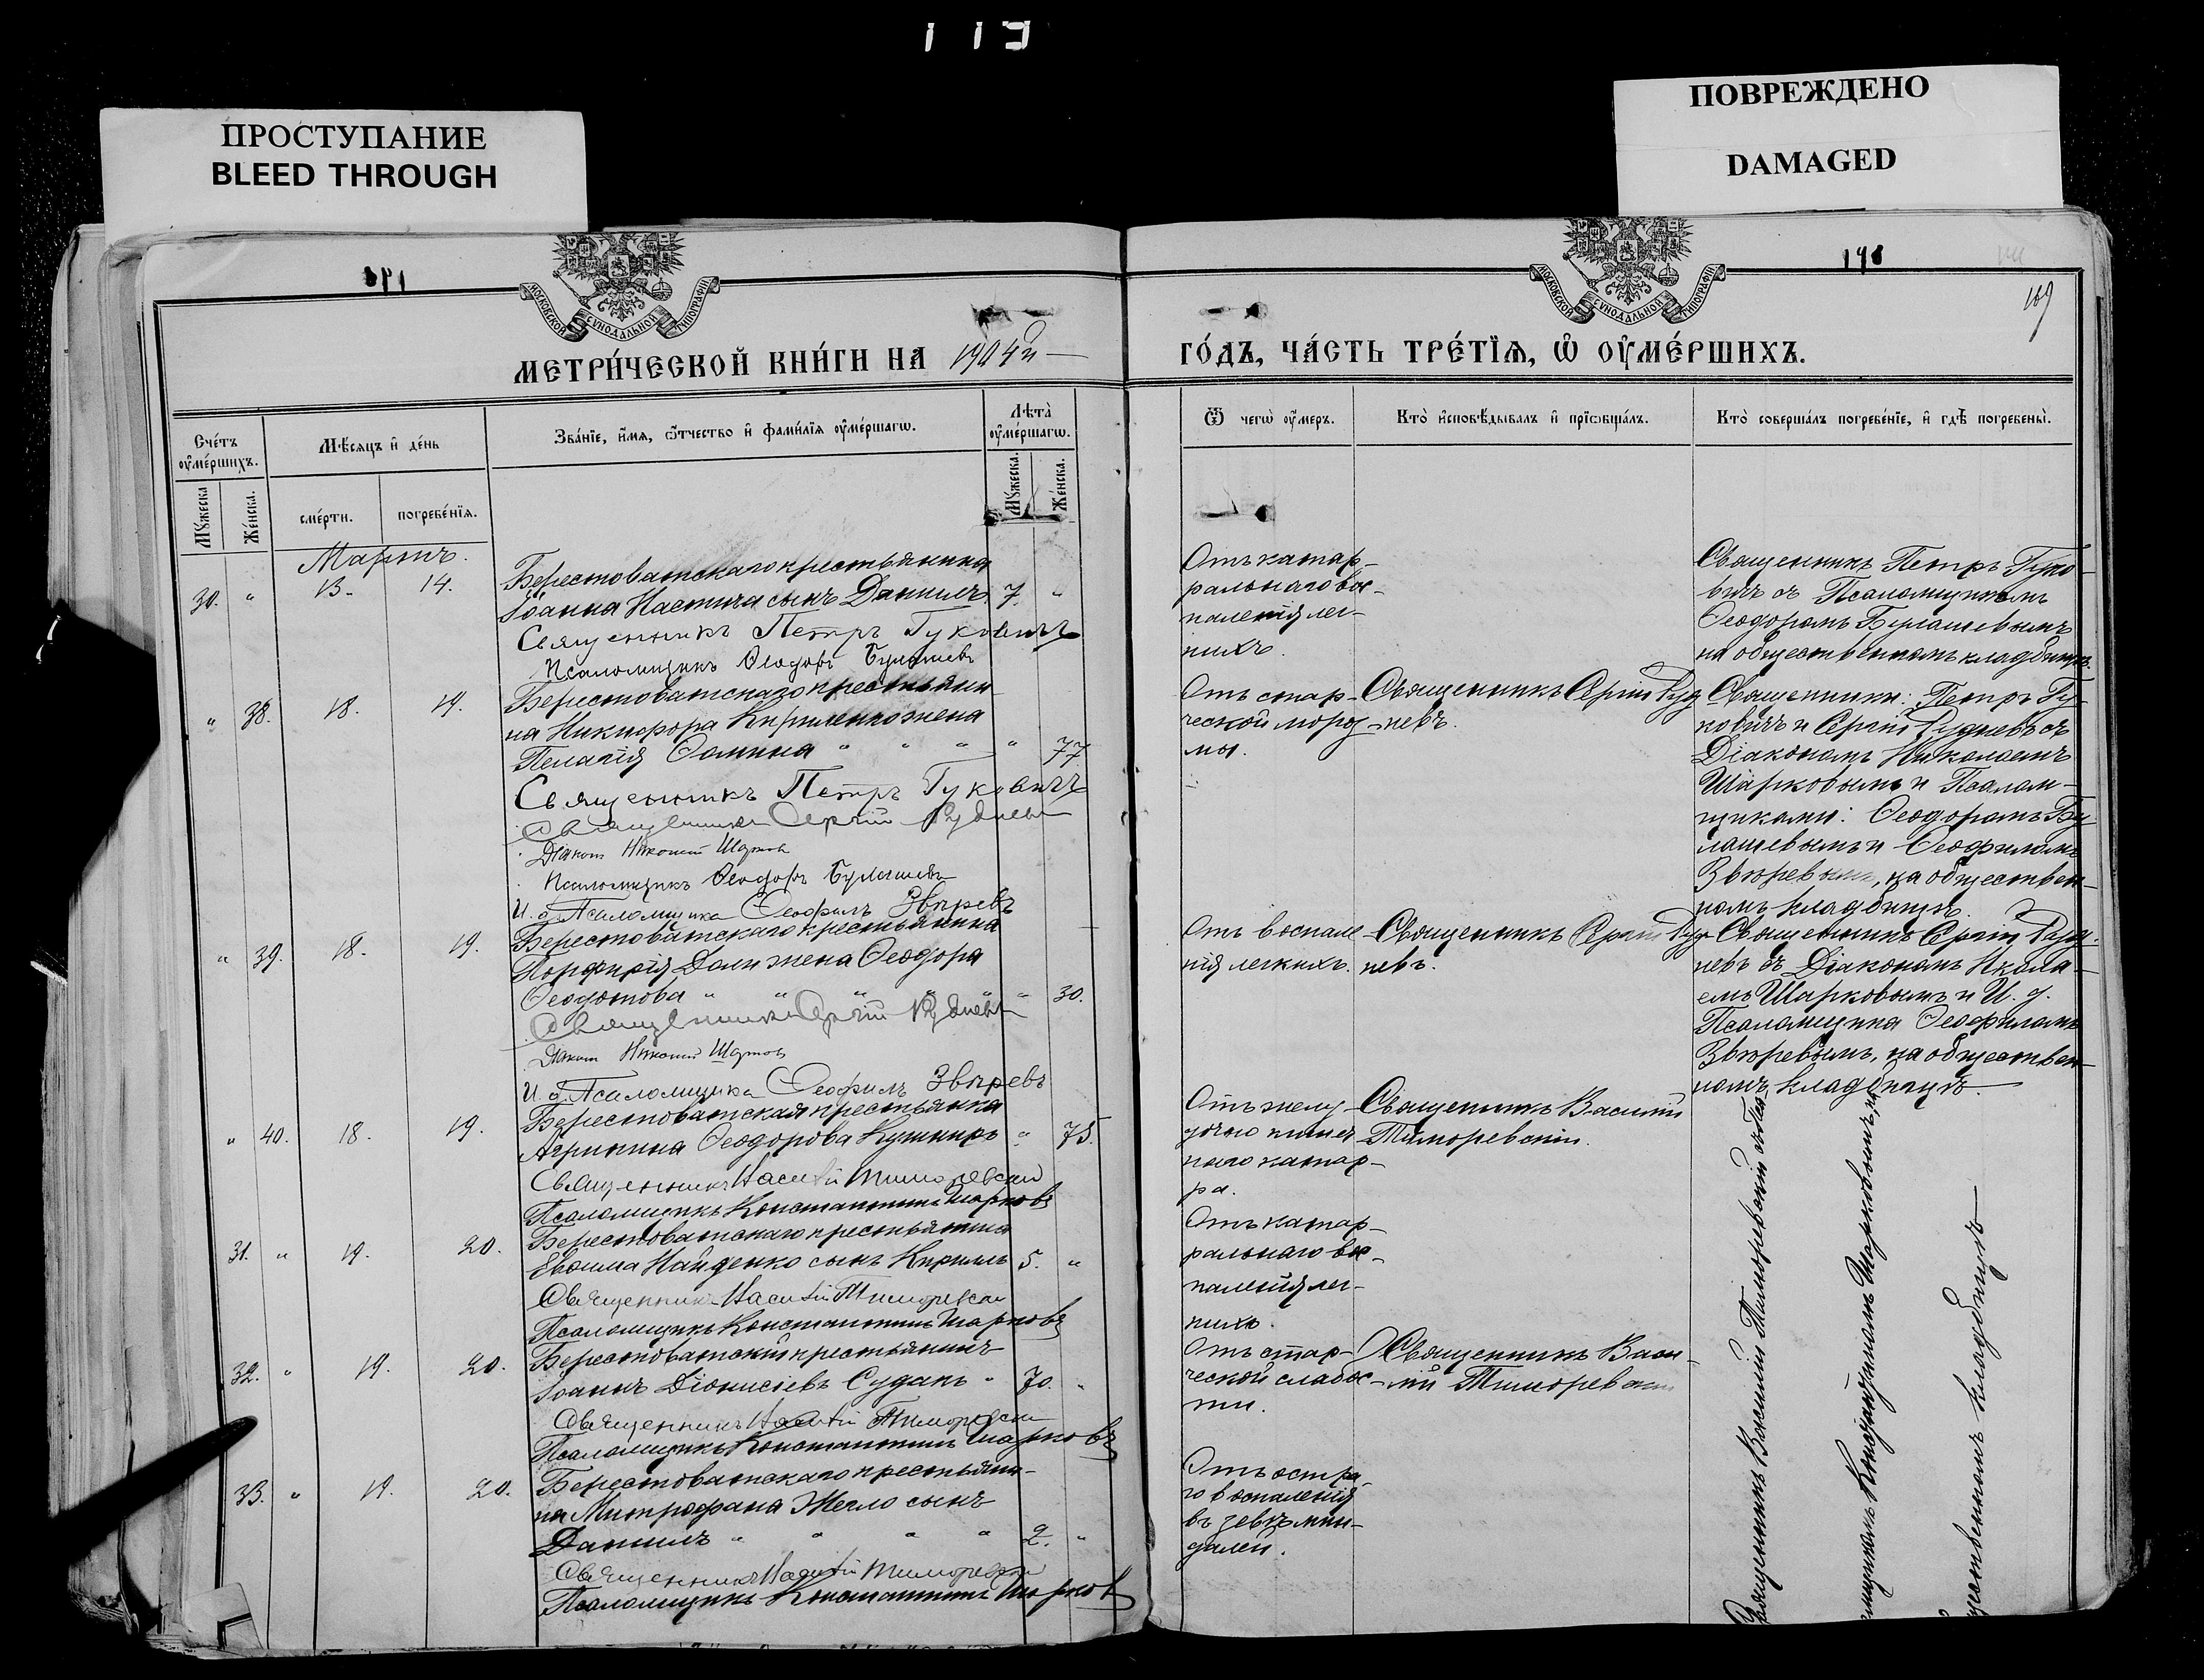 119
ПРОСТУПАНИЕ
BLEED THROUGH
ПОВРЕЖДЕНО
DAMAGED
МОСКОВСКОЙ СУНОДАЛЬНОЙ ТИПОГРАФІИ
МОСКОВСКОЙ СУНОДАЛЬНОЙ ТИПОГРАФІИ
109
МЕТРИ́ЧЕСКОЙ КНИ́ГИ НА 1904й
ГО́ДЪ, ЧА́СТЬ ТРЕ́ТІѦ, Ѡ҆ ОУ҆МЕ́РШИХЪ.
Сче́тъ оу҆ме́ршихъ.
Мѣ́сяцъ и҆ де́нь
Зва́нїе, и҆́мѧ, ѻ҆́тчество и҆ фами́лїѧ оу҆ме́ршагѡ.
Лѣ́та̀ оу҆ме́ршагѡ.
Мꙋ́жеска
Же́нска.
сме́рти.
погребе́нїѧ.
Мꙋ́жеска.
Же́нска.
Ѿ чегѡ̀ оу҆́меръ.
Кто̀ и҆сповѣ́дывалъ и҆ прїѡбща́лъ.
Кто̀ соверша́лъ погребе́нїе, и҆ гдѣ̀ погребены̀.
Мартъ.
30. " 13. 14.
Берестоватскаго крестьянина
Іоанна Настича сынъ Даниилъ 7. "
Священникъ Петръ Гуковичъ
Псаломщикъ Ѳеодоръ Булашевъ
Отъ катар-
ральнаго вос-
паленія лег-
кихъ.
Священникъ Петръ Гуко-
вичъ съ Псаломщикомъ
Ѳеодоромъ Булашевымъ
на общественномъ кладбищѣ.
" 38. 18. 19.
Берестоватскаго крестьяни-
на Никифора Кириленко жена
Пелагія Ѳомина " " " " 77
Священникъ Петръ Гуковичъ
Священникъ Сергій Рудневъ
Діаконъ Николай Шарковъ
Псаломщикъ Ѳеодоръ Булашевъ
И. д. Псаломщика Ѳеофилъ Звѣревъ
Отъ стар-
ческой
мы.
Священникъ Сергій Руд-
невъ.
Священники: Петръ Гу-
ковичъ и Сергій Рудневъ съ
Діакономъ Николаемъ
Шарковымъ и Псалом-
щиками: Ѳеодоромъ Бу-
лашевымъ и Ѳеофиломъ
Звѣревымъ, на обществен-
номъ кладбищѣ.
" 39. 18. 19.
Берестоватскаго крестьянина
Порфирія Доли жена Ѳеодора
Ѳеодотова " " " " " 30.
Священникъ Сергій Рудневъ
Діаконъ Николай Шарковъ
И. д. Псаломщика Ѳеофилъ Звѣревъ
Отъ воспале-
нія легкихъ.
Священникъ Сергій Руд-
невъ.
Священникъ Сергій Руд-
невъ съ Діакономъ Никола-
емъ Шарковымъ и И. д.
Псаломщика Ѳеофиломъ
Звѣревымъ, на обществен-
номъ кладбищѣ.
" 40. 18. 19.
Берестоватская крестьянка
Агрипина Ѳеодорова Кушниръ " 75.
Священникъ Василій Тиморевскій
Псаломщикъ Константинъ Шарковъ
Отъ желу-
дочно кишеч-
наго катар-
ра.
Священникъ Василій
Тиморевскій.
31. " 19. 20.
Берестоватскаго крестьянина
Евѳима Найденко сынъ Кириллъ 5. "
Священникъ Василій Тиморевскій
Псаломщикъ Константинъ Шарковъ
Отъ катар-
ральнаго вос-
паленія лег-
кихъ.
32. " 19. 20.
Берестоватскій крестьянинъ
Іоаннъ Діонисіевъ Судакъ " 70. "
Священникъ Василій Тиморевскій
Псаломщикъ Константинъ Шарковъ
Отъ стар-
ческой слабос-
ти.
Священникъ Васи-
лій Тиморевскій
33. " 19. 20.
Берестоватскаго крестьяни-
на Митрофана Жегло сынъ
Даниилъ " " " " 2. "
Священникъ Василій Тиморевскій
Псаломщикъ Константинъ Шарковъ
Отъ остра-
го воспаленія
въ зевѣ мин-
далеи.
Священникъ Василій Тиморевскій съ Пса-
ломщикомъ Константиномъ Шарковымъ, на
общественномъ кладбищѣ